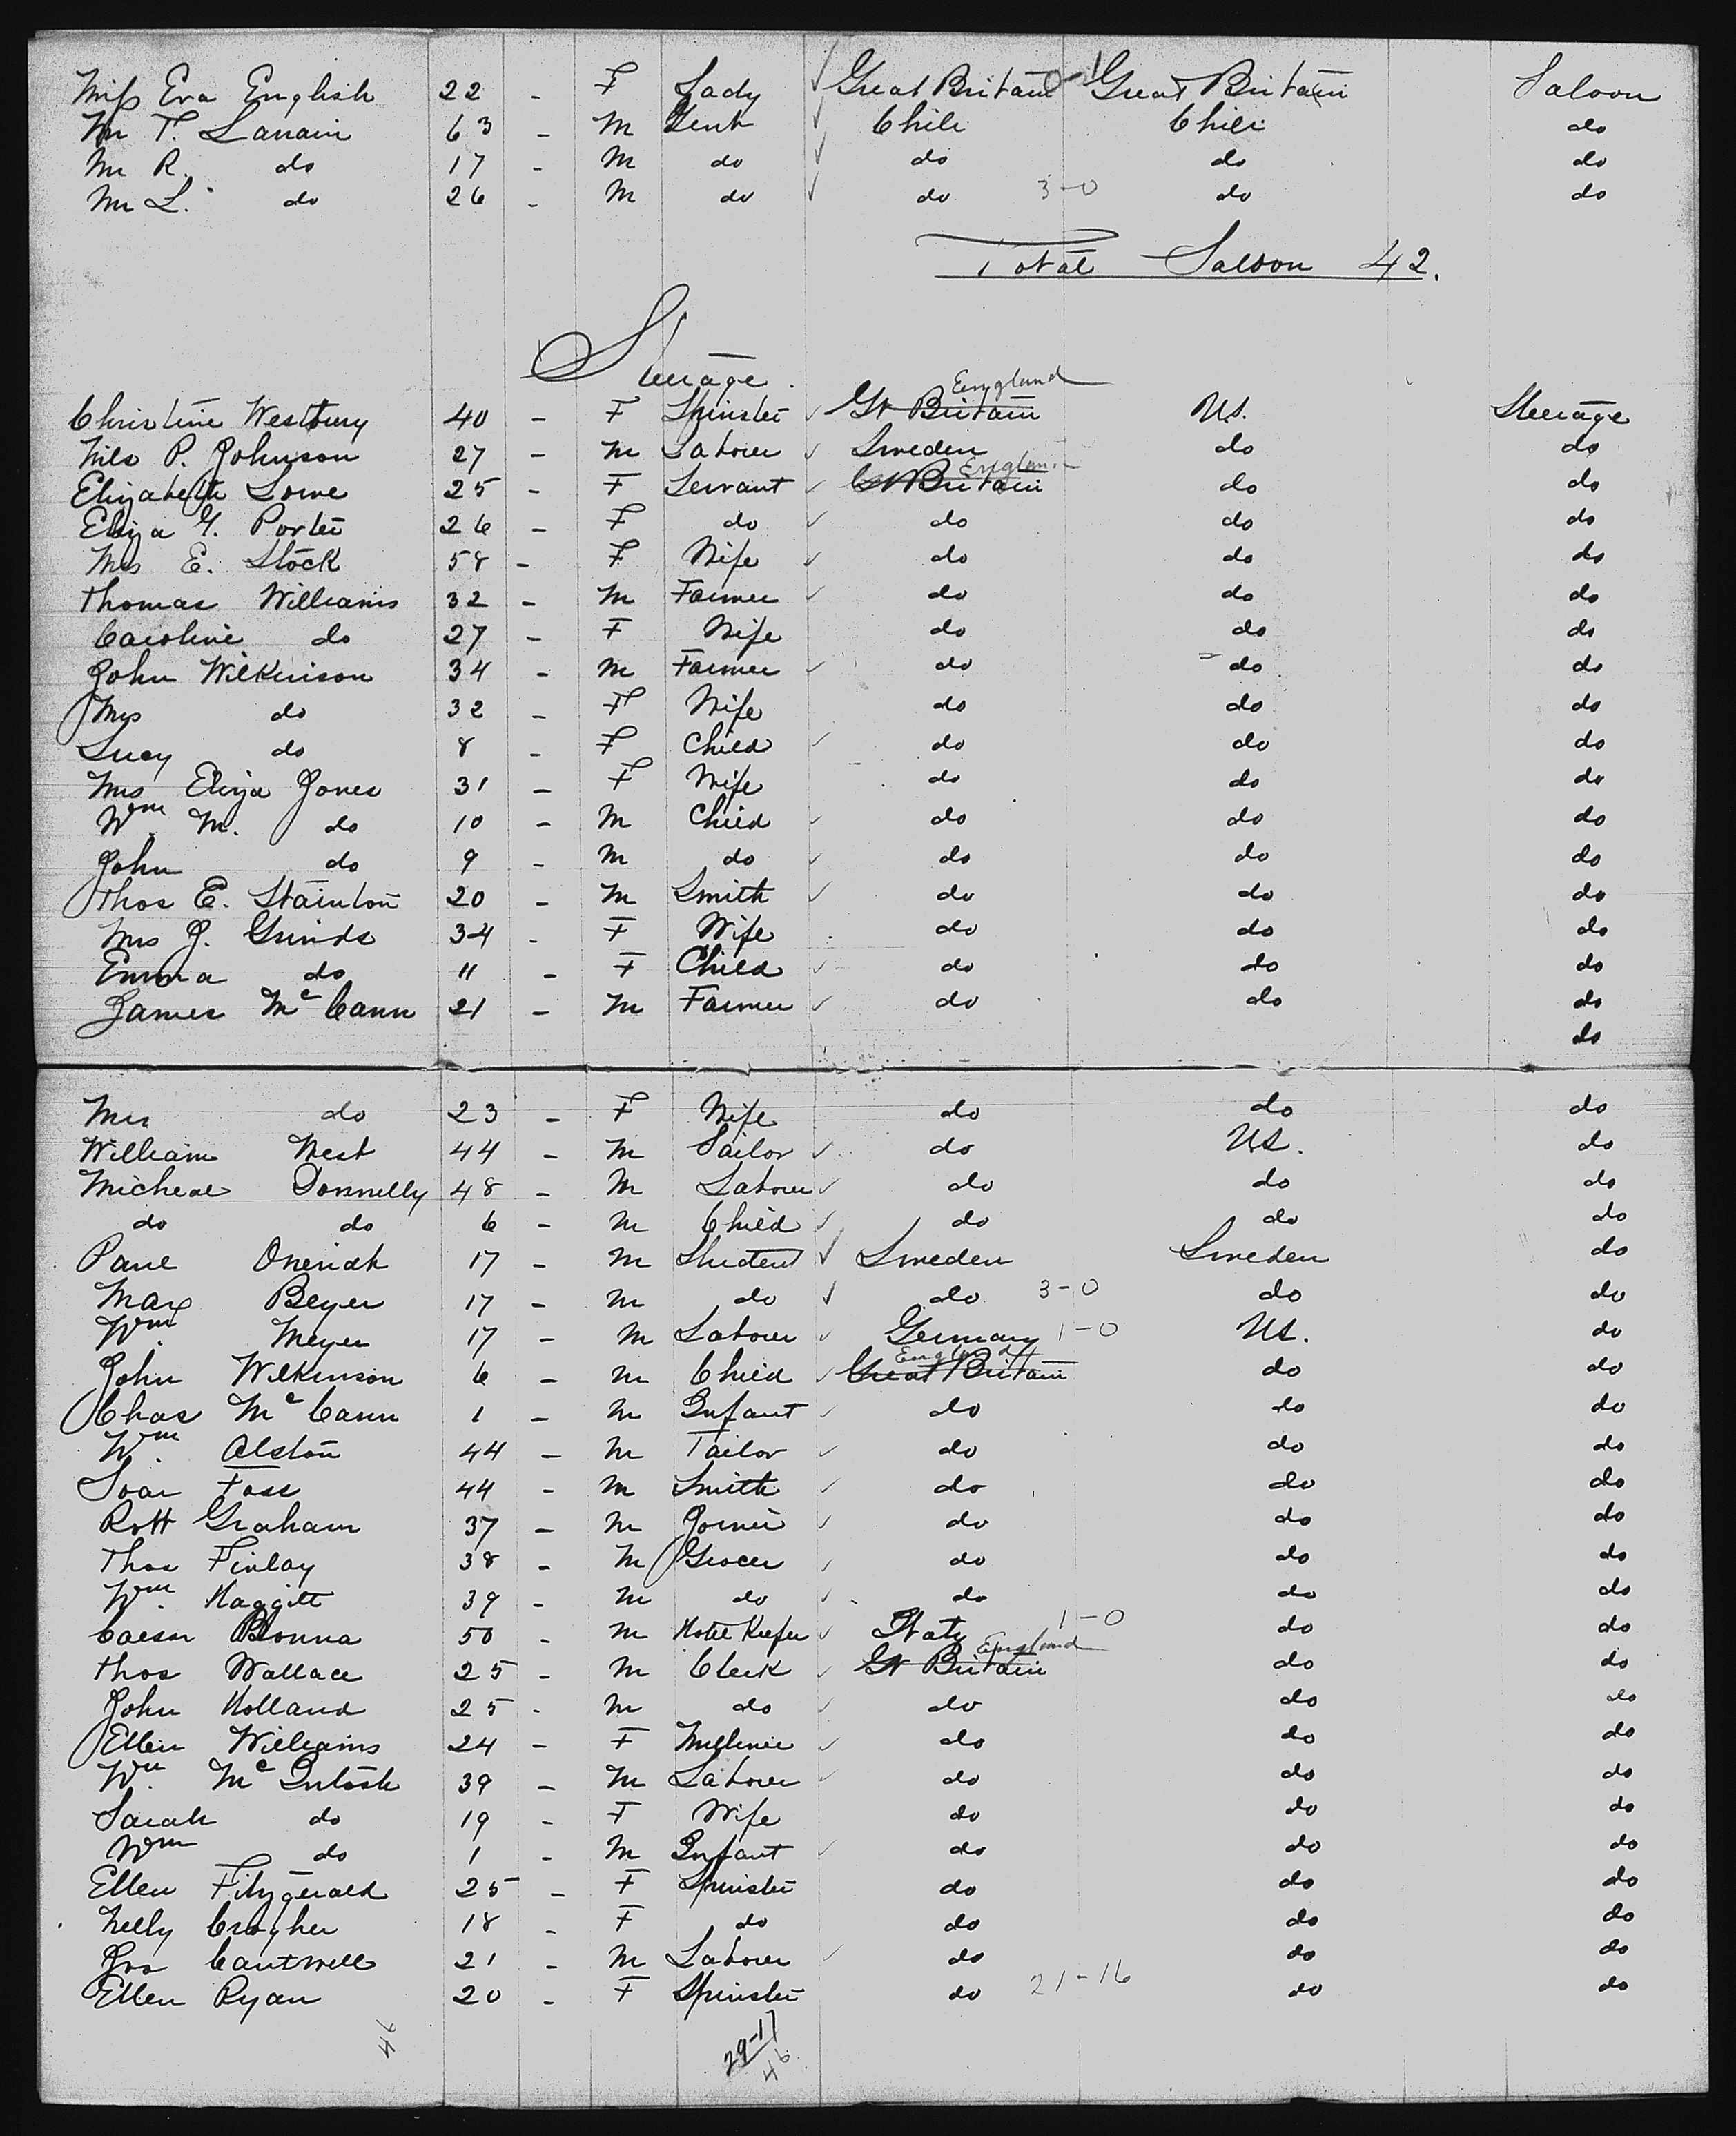 Miss Eva English 22 - F Lady ✓ Great Britain 0-1 Great Britain Saloon
Mr T. Larrain 63 - M Gent ✓ Chili Chili do
Mr R. do 17 - M do ✓ do do do
Mr L. do 26 - M do ✓ do 3-0 do do
Total Saloon 42.
Steerage
England
Christine Westbury 40 - F Spinster ✓ Gt Britain US. Steerage
Nils P. Johnson 27 - M Laborer ✓ Sweden do do
England
Elizabeth Lowe 25 - F Servant ✓ Gt Britain do do
Eliza G. Porter 26 - F do ✓ do do do
Mrs E. Stock 58 - F Wife ✓ do do do
Thomas Williams 32 - M Farmer ✓ do do do
Caroline do 27 - F Wife do do do
John Wilkinson 34 - M Farmer ✓ do do do
Mrs do 32 - F Wife do do do
Lucy do 8 - F Child ✓ do do do
Mrs Eliza Jones 31 - F Wife do do do
Wm M. do 10 - M Child ✓ do do do
John do 9 - M do ✓ do do do
Thos E. Stainton 20 - M Smith ✓ do do do
Mrs J. Grinds 34 - F Wife do do do
Emma do 11 - F Child ✓ do do do
James McCann 21 - M Farmer ✓ do do do
do
Mrs do 23 - F Wife do do do
William West 44 - M Sailor ✓ do US. do
Micheal Donnelly 48 - M Laborer ✓ do do do
do do 6 - M Child ✓ do do do
Paul 17 - M Student ✓ Sweden Sweden do
Max Beyer 17 - M do ✓ do 3-0 do do
Wm Meyer 17 - M Laborer ✓ Germany 1-0 US. do
England
John Wilkinson 6 - M Child ✓ Great Britain do do
Chas McCann 1 - M Infant ✓ do do do
Wm Alston 44 - M Tailor ✓ do do do
Foss 44 - M Smith ✓ do do do
Robt Graham 37 - M Joiner ✓ do do do
Thos Finlay 38 - M Grocer ✓ do do do
Wm. Haggitt 39 - M do ✓ do do do
Caesar Bonna 50 - M Hotel Keeper ✓ Italy 1-0 do do
England
Thos Wallace 25 - M Clerk ✓ Gt Britain do do
John Holland 25 - M do ✓ do do do
Ellen Williams 24 - F Milliner ✓ do do do
Wm. McIntosh 39 - M Laborer ✓ do do do
Sarah do 19 - F Wife do do do
Wm do 1 - M Infant ✓ do do do
Ellen Fitzgerald 25 - F Spinster do do do
Nelly 18 - F do do do do
Jno Cantwell 21 - M Laborer ✓ do do do
Ellen Ryan 20 - F Spinster do 21-16 do do
29-17
46